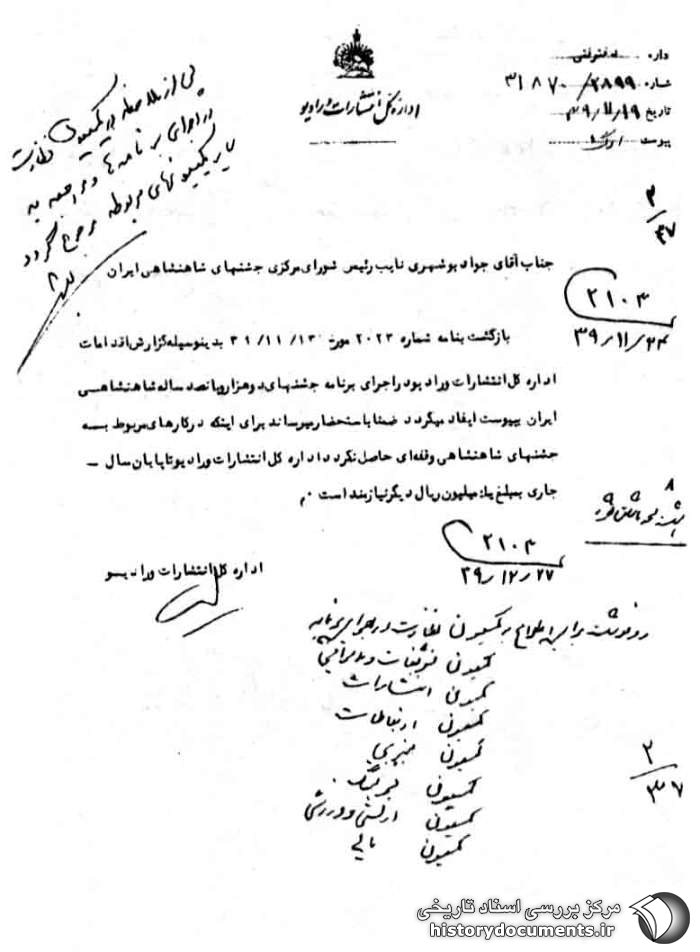 اداره کل انتشارات و رادیو
اداره دفتر فنی
شماره ۳۱۸۷۰/۲۸۹۹
تاریخ ۳۹/۱۱/۱۹
پیوست
پس از ملاحظه در کمیسیون نظارت
در اجرای برنامه‌ها و مراجعه به
سایر کمیسیونهای مربوطه مرجوع گردد
۲/۳۷
جناب آقای جواد بوشهری نایب رئیس شورای مرکزی جشنهای شاهنشاهی ایران
۲۱۰۳
۳۹/۱۱/۲۴
بازگشت بنامه شماره ۲۰۲۳ مورخ ۳۹/۱۱/۱۳ بدینوسیله گزارش اقدامات
اداره کل انتشارات و رادیو در اجرای برنامه جشنهای دو هزار و پانصد ساله شاهنشاهی
ایران بپیوست ایفاد میگردد ضمنا باستحضار میرساند برای اینکه در کارهای مربوط بـه
جشنهای شاهنشاهی وقفه‌ای حاصل نگردد اداره کل انتشارات و رادیو تا پایان سال –
جاری بمبلغ یک میلیون ریال دیگر نیازمند است م۰
۲۱۰۳
۳۹/۱۲/۲۷
اداره کل انتشارات و رادیو
رونوشت برای اطلاع به کمیسیون نظارت در اجرای برنامه
کمیسیون تبلیغات و
کمیسیون انتشارات
کمیسیون ارتباطات
کمیسیون
کمیسیون فرهنگ
کمیسیون ارتش و ورزش
کمیسیون مالی
۲/۳۷
مرکز بررسی اسناد تاریخی
historydocuments.ir